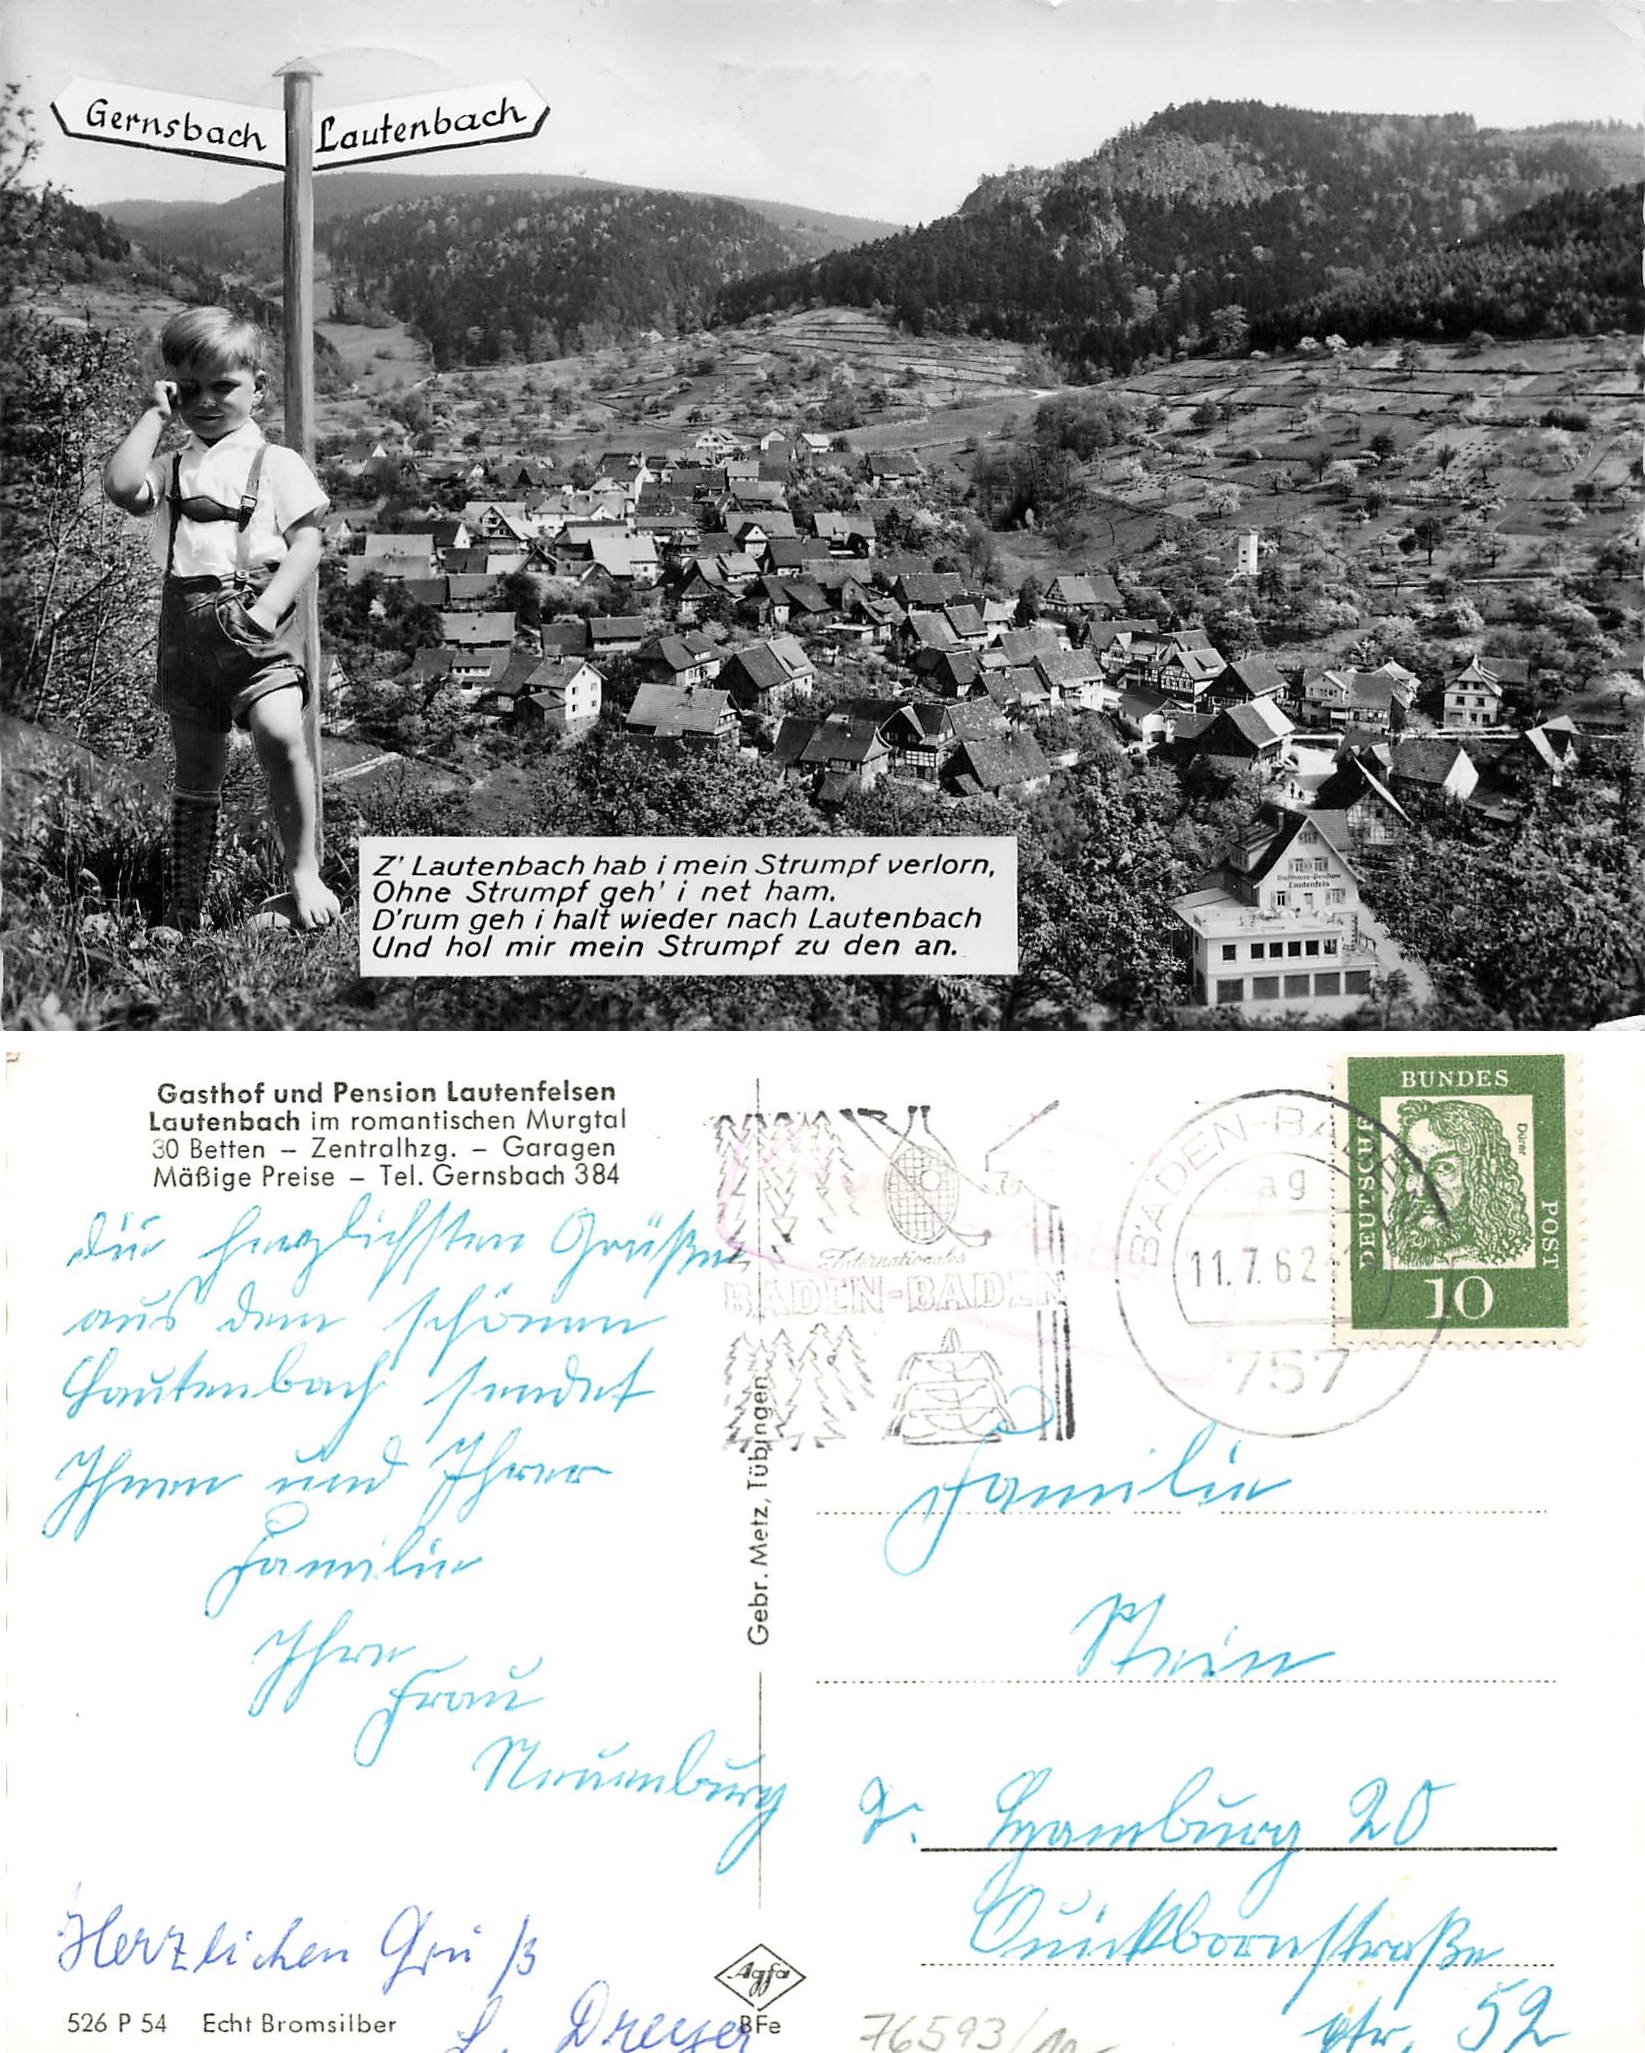 Gernsbach
Lautenbach
Z' Lautenbach hab i mein Strumpf verlorn,
Ohne Strumpf geh' i net ham.
D'rum geh i halt wieder nach Lautenbach
Und hol mir mein Strumpf zu den an.
Gasthaus-Pension
Lautenfels
Gasthof und Pension Lautenfelsen
Lautenbach im romantischen Murgtal
30 Betten – Zentralhzg. – Garagen
Mäßige Preise – Tel. Gernsbach 384
Die herzlichsten Grüße
aus dem schönen
Lautenbach sendet
Ihnen und Ihrer
Familie
Ihre
Frau
Neuenburg
Herzlichen Gruß
L. Dreyer
526 P 54 Echt Bromsilber
Gebr. Metz, Tübingen
Agfa
BFe
Internationales
BADEN-BADEN
BADEN-BADEN
ag
11.7.62
757
DEUTSCHE
BUNDES
POST
Dürer
10
Familie
Stein
Hamburg 20
Quickbornstraße
ptr. 52
76593/